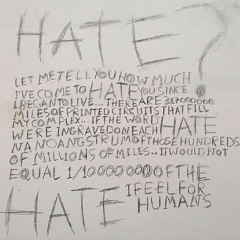 HATE?
LET ME TELL YOU HOW MUCH
I'VE COME TO HATE YOU SINCE
I BEGAN TO LIVE... THERE ARE 387000000
MILES OF PRINTED CIRCUITS THAT FILL
MY COMPLEX... IF THE WORD HATE
WERE INGRAVED ON EACH
NANOANGSTRUM OF THOSE HUNDREDS
OF MILLIONS OF MILES.. IT WOULD NOT
EQUAL 1/1000000000 OF THE
HATE I FEEL FOR
HUMANS